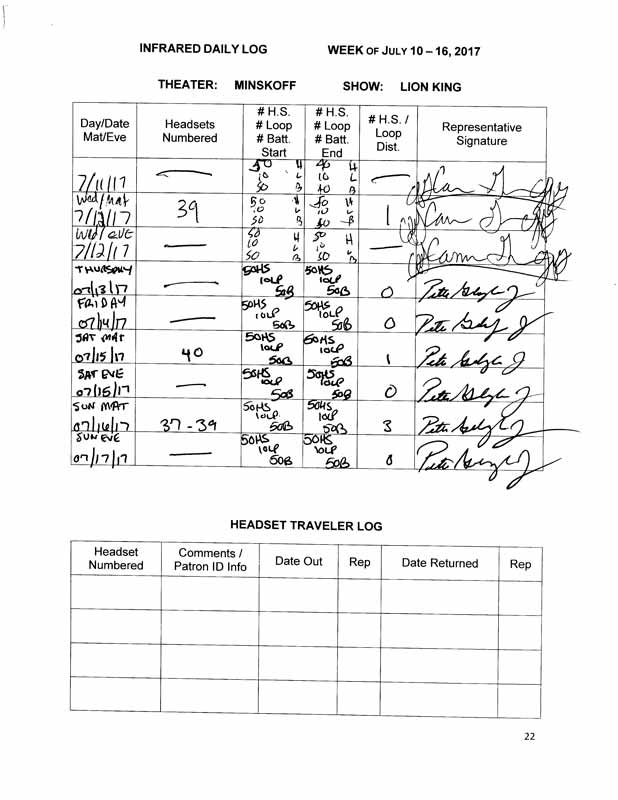 INFRARED DAILY LOG WEEK OF JULY 10 – 16, 2017
THEATER: MINSKOFF SHOW: LION KING
Day/Date Mat/Eve Headsets Numbered # H.S. # Loop # Batt. Start # H.S. # Loop # Batt. End # H.S. / Loop Dist. Representative Signature
7/11/17 — 50 H 10 L 50 B H 10 L B —
Wed/Mat
7/12/17 39 50 H 10 L 50 B H 10 L B 1
Wed/EVE
7/12/17 — 50 H 10 L 50 B 50 H 10 50 B —
THURSDAY
07/13/17 — 50HS 10LP 50B 50HS 10LP 50B 0
FRIDAY
07/14/17 — 50HS 10LP 50B 50HS 10LP 50B 0
SAT MAT
07/15/17 40 50HS 10LP 50B 50HS 10LP 50B 1
SAT EVE
07/15/17 — 50HS 10LP 50B 50HS 10LP 50B 0
SUN MAT
07/16/17 37-39 50HS 10LP 50B 50HS 10LP 50B 3
SUN EVE
07/17/17 — 50HS 10LP 50B 50HS 10LP 50B 0
HEADSET TRAVELER LOG
Headset Numbered Comments / Patron ID Info Date Out Rep Date Returned Rep
22